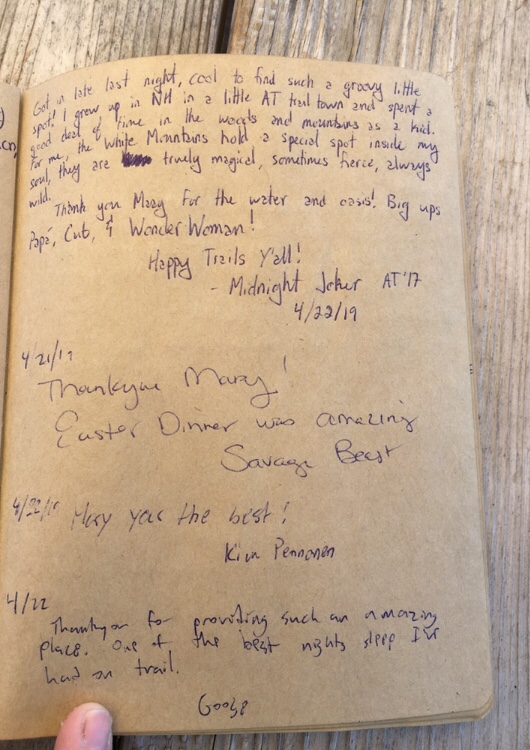 Got in late last night, cool to find such a groovy little
spot! I grew up in NH in a little AT trail town and spent a
good deal of time in the woods and mountains as a kid.
For me, the White Mountains hold a special spot inside my
soul, they are truely magical, sometimes fierce, always
wild.
Thank you Mary for the water and oasis! Big ups
Papá, Cub, & Wonder Woman!
Happy Trails Y'all!
- Midnight Joker AT '17
4/22/19
4/21/19
Thankyou Mary!
Easter Dinner was amazing
Savage Beast
4/22/19 Mary your the best!
Kim Pennonen
4/22
Thankyou for providing such an amazing
place. One of the best nights sleep I've
had on trail.
Goose